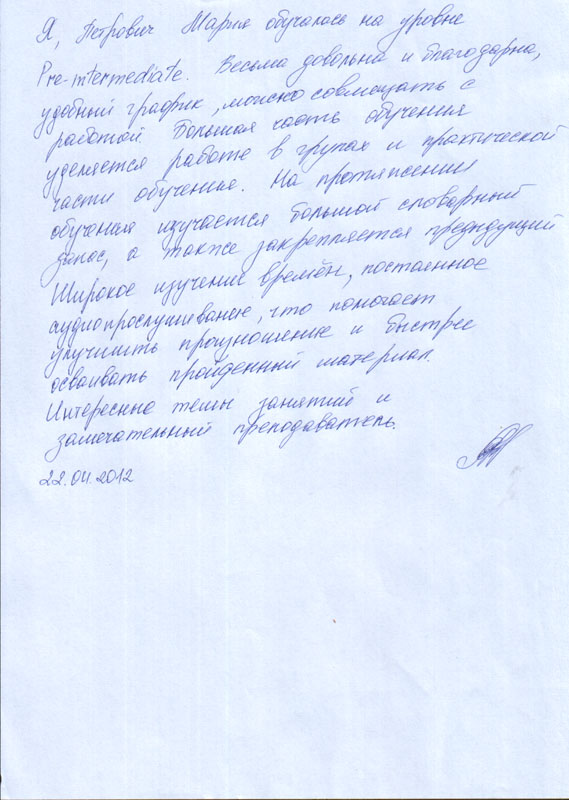 Я, Петрович Мария обучалась на уровне
Pre-intermediate. Весьма довольна и благодарна,
удобный график, можно совмещать с
работой. Большая часть обучения
уделяется работе в групах и практической
части обучения. На протяжении
обучения изучается большой словарный
запас, а также закрепляется предыдущий
Широкое изучение времён, постоянное
аудиопрослушивание, что помогает
улучшить произношение и быстрее
осваивать пройденный материал
Интересные темы занятий и
замечательный преподаватель.
22.04.2012